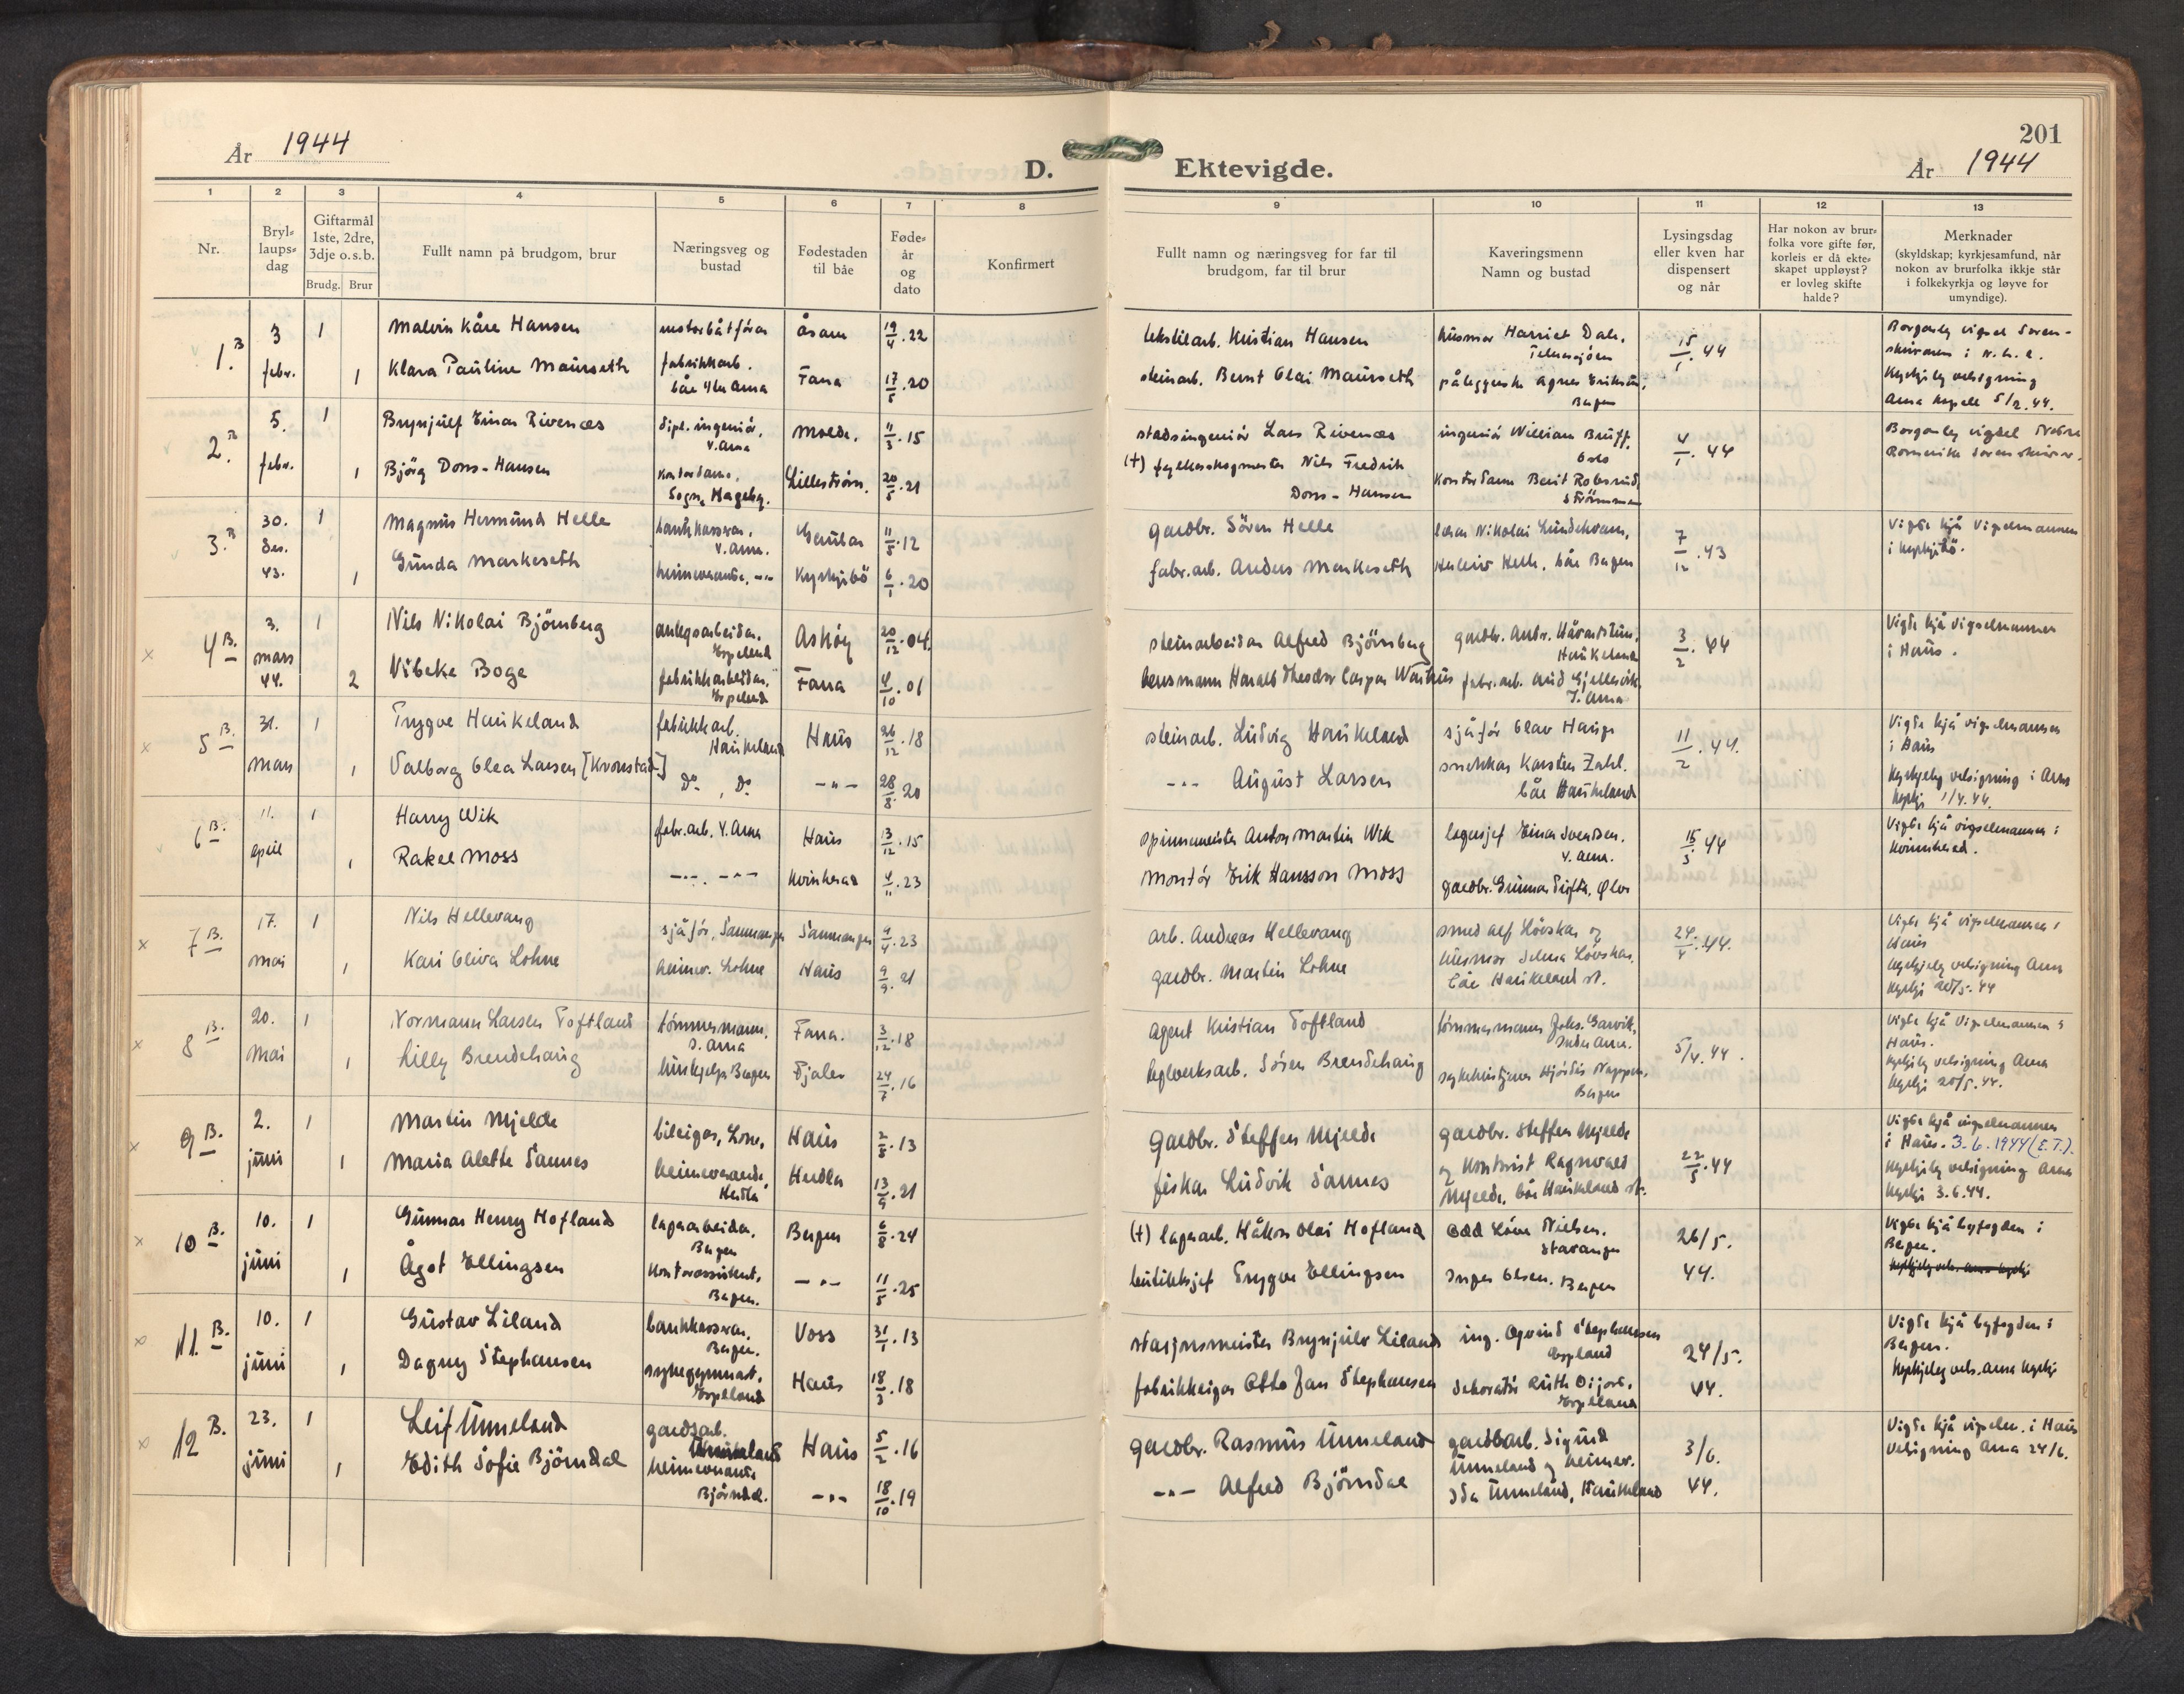 År 1944
D.
Ektevigde.
201
År 1944
1 2 3 4 5 6 7 8 9 10 11 12 13
Nr.
Bryl-
laups-
dag
Giftarmål
1ste, 2dre,
3dje o.s.b.
Brudg. Brur
Fullt namn på brudgom, brur
Næringsveg og
bustad
Fødestaden
til båe
Føde-
år
og
dato
Konfirmert
Fullt namn og næringsveg for far til
brudgom, far til brur
Kaveringsmenn
Namn og bustad
Lysingsdag
eller kven har
dispensert
og når
Har nokon av brur-
folka vore gifte før,
korleis er då ekte-
skapet uppløyst?
er lovleg skifte
halde?
Merknader
(skyldskap; kyrkjesamfund, når
nokon av brurfolka ikkje står
i folkekyrkja og løyve for
umyndige).
1. B 3 febr. 1 Malvin Kåre Hansen motorbåtförar Åsane 19/4.22
1 Klara Pauline Maurseth fabrikkarb. båe Y. Arna Fana 17/5.20
tekstilarb. Kristian Hansen husmor Harriet Dale, 15/1.44
steinarb. Bernt Olai Maurseth påleggerske Agnes Bergen
Borgarleg vigsel Soren-
skrivaren i N.H.
Kyrkjeleg velsigning
Arna kapell 5/2.44.
2. B 5. febr. 1 Brynjulf Einar Rivenes dipl. ingeniör, Y. Arna Molde. 11/3.15
1 Björg Dons-Hansen Kontordame, Sogn Hageby. Lilleström. 20/5.21
stadsingeniör Lars Rivenes ingeniör William Bruff. Oslo 4/1.44
(+) fylkesskogmester Nils Fredrik
Dons-Hansen
Kontordame Berit Robsrud, Strömmen
Borgarleg vigsel Nedre
Romerike Sorenskrivar.
3. B 30. des. 43. 1 Magnus Hermund Helle bankkasserar, Y. Arna. Gaular 11/5.12
1 Gunda Markeseth heimeverande, -"- Kyrkjebö 6/1.20
gardbr. Sören Helle Nikolai Lundekvam, 7/12.43
fabr.arb. Anders Markeseth Helle, båe Bergen
Vigde hjå Vigselmannen
i Kyrkjebö.
4 B. 3. mars 44. 1 Nils Nikolai Björnberg anlegsarbeidar. Espeland Askøy 20/12.04
2 Vibeke Boge fabrikkarbeidar. Espeland Fana 4/10.01
steinarbeidar Alfred Björnsberg gardbr. Andr. Haukeland 3/2.44
lensmann Harald Theodor Caspar fabr.arb. Gjellesvik, Y. Arna
Vigde hjå Vigselmannen
i Haus.
5 B. 31. mars 1 Trygve Haukeland fabrikkarb. Haukeland Haus 26/12.18
1 Valborg Olea Larsen [Kronstad] Do, Do -"- 28/8.20
steinarb. Ludvig Haukeland sjåför Olav Hauge 11/2.44.
-"- August Larsen snekkar Karsten Zahl. båe Haukeland
Vigde hjå vigselmannen
i Haus
Kyrkjeleg velsigning i Arna
kyrkje 1/4.44.
6 B. 11. april 1 Harry Wik fabr.arb. Y. Arna Haus 13/12.15
1 Rakel Moss -"- -"- Kvinherad 4/11.23
spinnmeister Anton Martin Wik lagersjef Einar Svendsen. Y. Arna. 15/3.44
Montör Erik Hansson Moss gardbr. Gunnar
Vigde hjå vigselmannen i
Kvinnherad.
7 B. 17. mai 1 Nils Hellevang sjåför, Samnanger Samnanger 9/4.23
1 Kari Oliva Lohne heimev. Lohne Haus 9/9.21
arb. Andreas Hellevang smed Alf Lövskar og 24/4.44.
gardbr. Martin Lohne husmor Selma Lövskar, båe Haukeland st.
Vigde hjå vigselmannen i
Haus
Kyrkjeleg velsigning Arna
kyrkje 20/5.44
8 B. 20. mai 1 Normann Larsen Toftland tömmermann. I. Arna Fana. 3/12.18
1 Lilly Brendehaug hushjelp Bergen Fjaler 24/7.16
Agent Kristian Toftland tömmermann Johs. Garvik, Indre Arna. 5/4.44.
teglverksarb. Sören Brendehaug Hjördis Bergen
Vigde hjå Vigselmannen i
Haus.
Kyrkjeleg velsigning Arna
kyrkje 20/5.44.
9 B. 2. juni 1 Martin Mjelde bileigar, Lone, Haus 2/8.13
1 Maria Alette Sannes heimeverande, Herdla Herdla 13/9.21
Gardbr. Steffen Mjelde gardbr. Steffen Mjelde 22/5.44
fiskar Ludvik Sannes og Ragnvald
Mjelde, båe Haukeland st.
Vigde hjå vigselmannen
i Haus. 3.6.1944 (E.T.).
Kyrkjeleg velsigning Arna
kyrkje 3.6.44.
10 B. 10. juni 1 Gunnar Henry Hofland lagerarbeidar, Bergen Bergen 6/8.24
1 Ågot Ellingsen Kontorassistent, Bergen. -"- 11/5.25
(+) lagerarb. Håkon Olai Hofland Odd Nielsen. Stavanger 26/5.
butikksjef Trygve Ellingsen Inger Olsen. Bergen 44.
Vigde hjå byfogden i
Bergen.
11. B. 10. juni 1 Gustav Liland bankkasserar, Bergen. Voss 31/1.13
1 Dagny Stephansen sykegymnast, Espeland Haus 18/3.18
stasjonsmeister Brynjulv Liland ing. Öyvind Stephansen Espeland 24/5.
fabrikkeigar Otto Jan Stephansen Ruth Espeland 44.
Vigde hjå byfogden i
Bergen.
Kyrkjeleg vels. Arna kyrkje
12 B. 23. juni 1 Leif Unneland gardsarb. Unneland Haus 5/2.16
1 Edith Sofie Björndal heimeverande Björndal. -"- 18/10.19
gardbr. Rasmus Unneland gardbarb. Sigurd 3/6.
-"- Alfred Björndal Unneland og heimev. 44.
Ida Unneland, Haukeland
Vigde hjå vigselm. i Haus
Velsigning Arna 24/6.